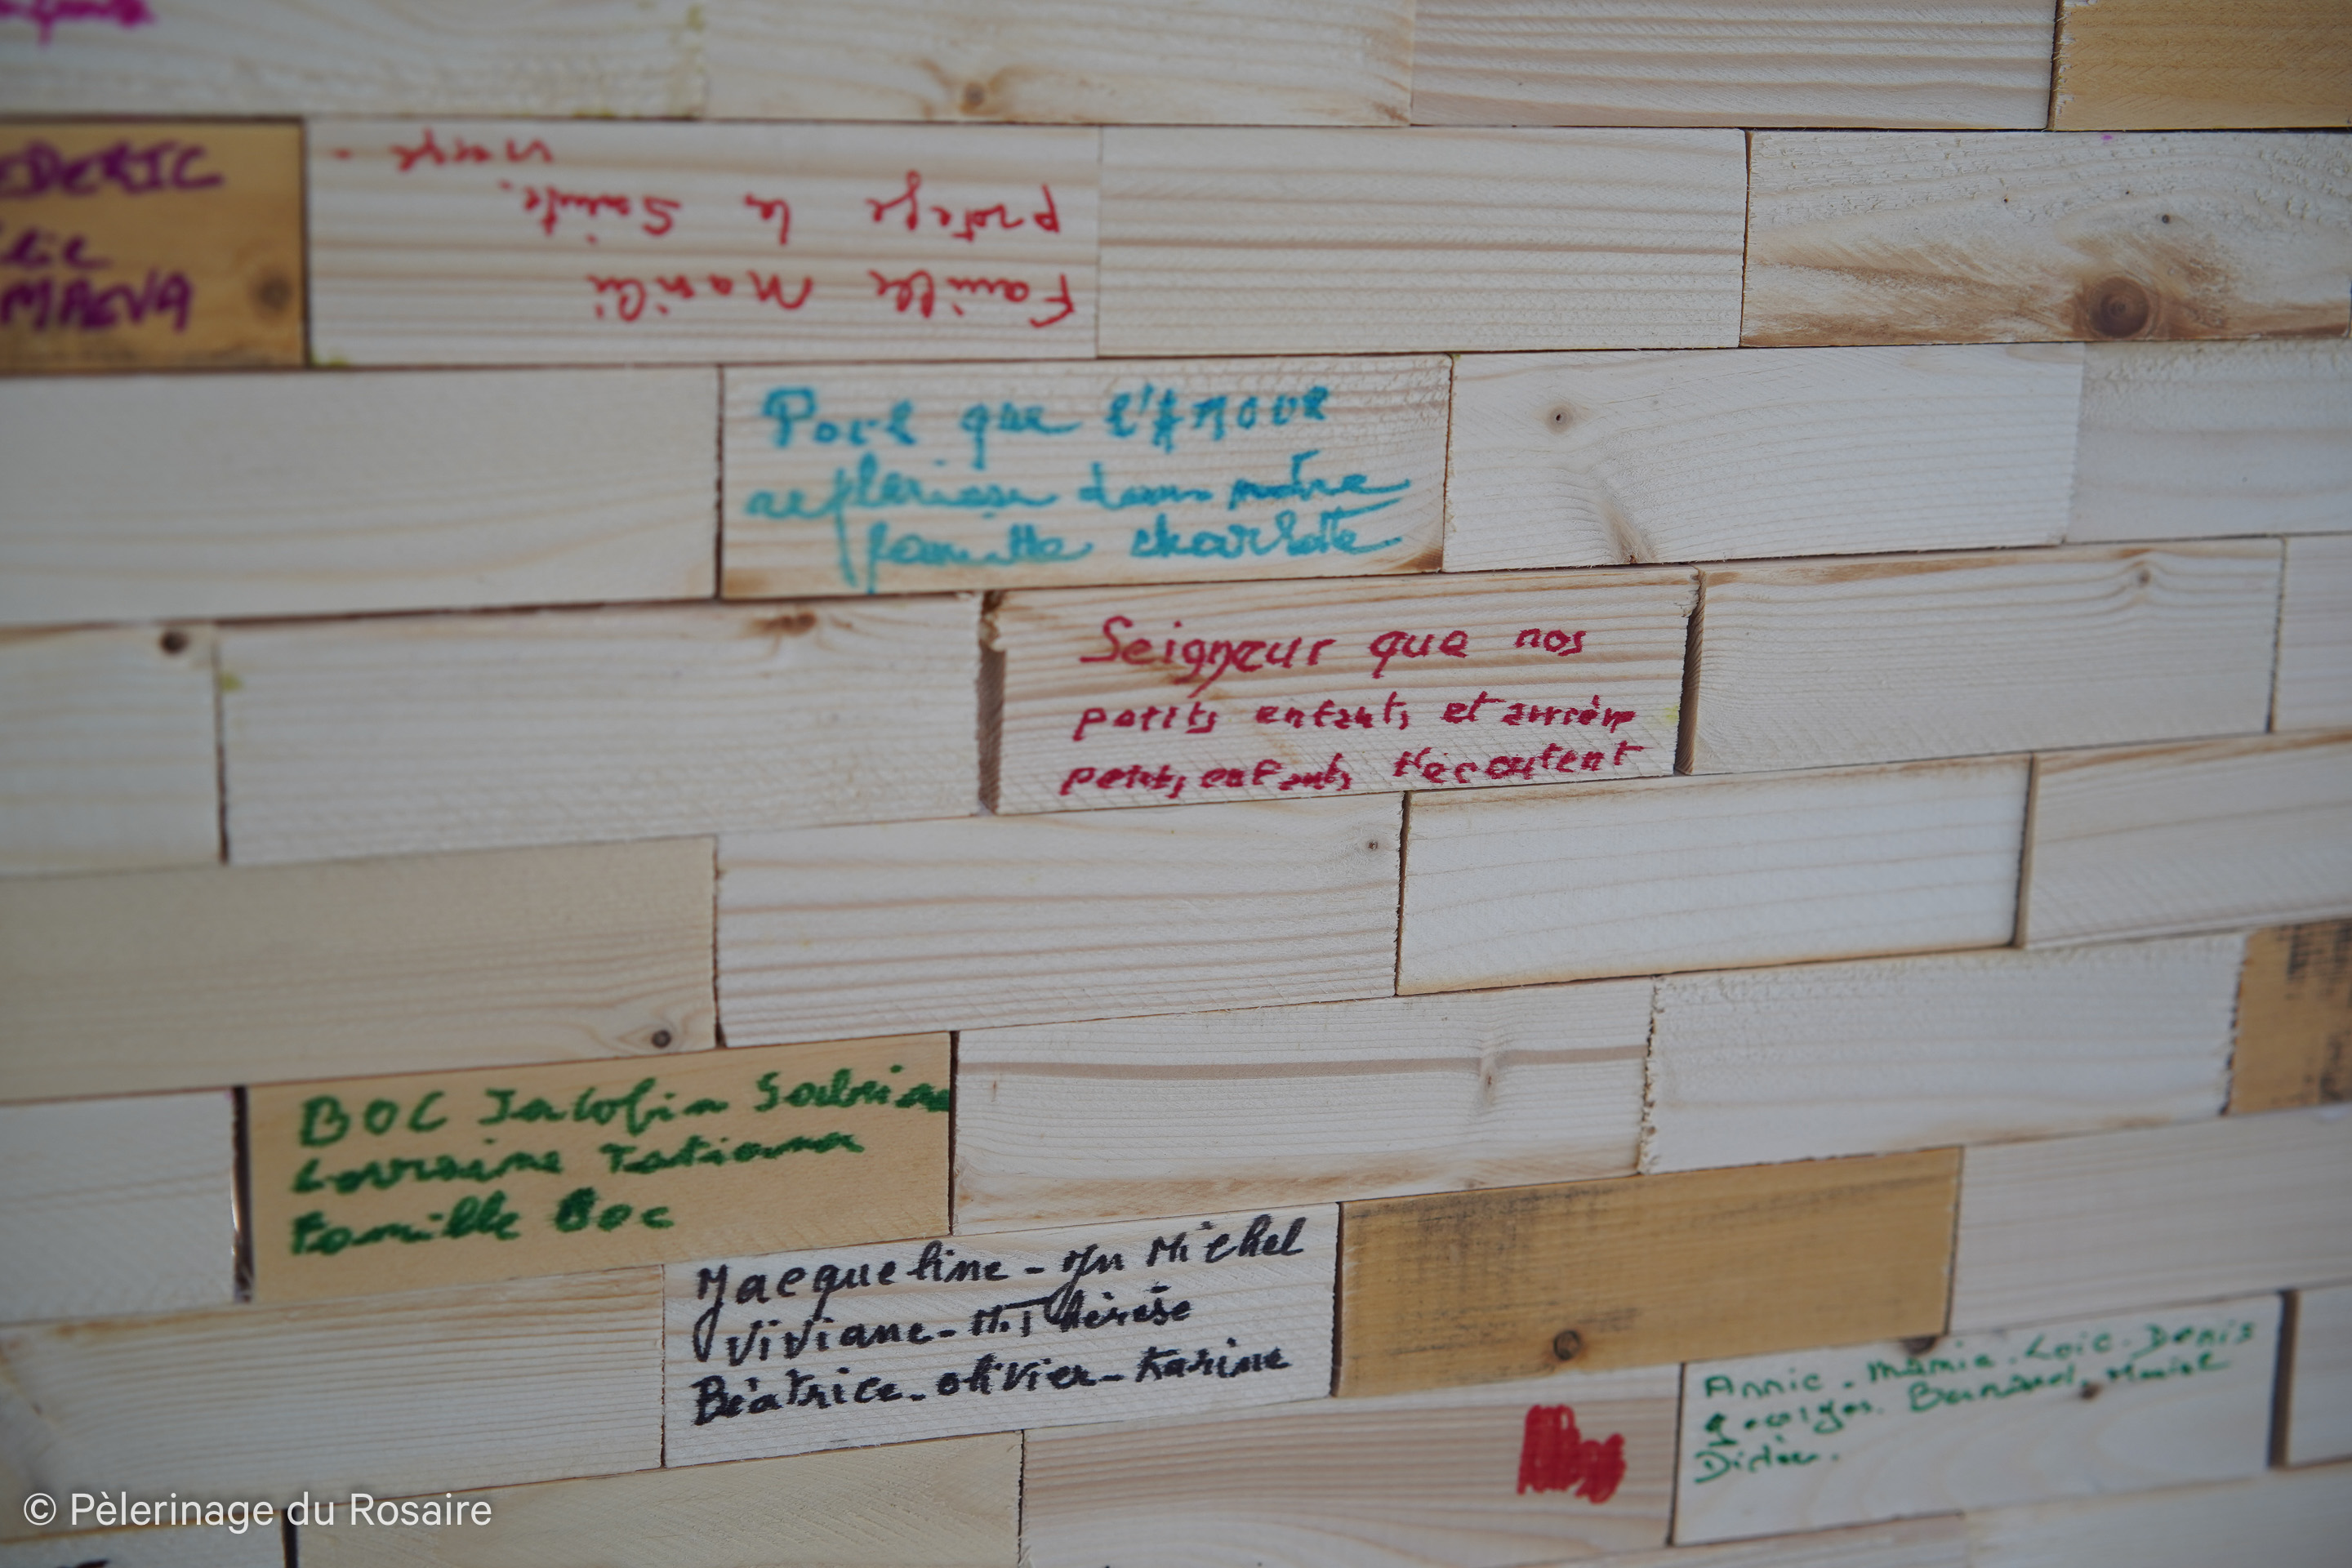 EDERIC
MAEVA
Famille
protege la Sainte
vierge.
Pour que l'Amour
refleurisse dans notre
famille charlotte
Seigneur que nos
petits enfants et arrière
petits enfants t'écoutent
BOC Jacobin Sabrina
Lorraine Tatiana
Famille Boc
Jacqueline - Jn Michel
Viviane - M.Thérèse
Béatrice - olivier - Karine
Annie . Mamie . Loic . Denis
georges . Bernard,
© Pèlerinage du Rosaire